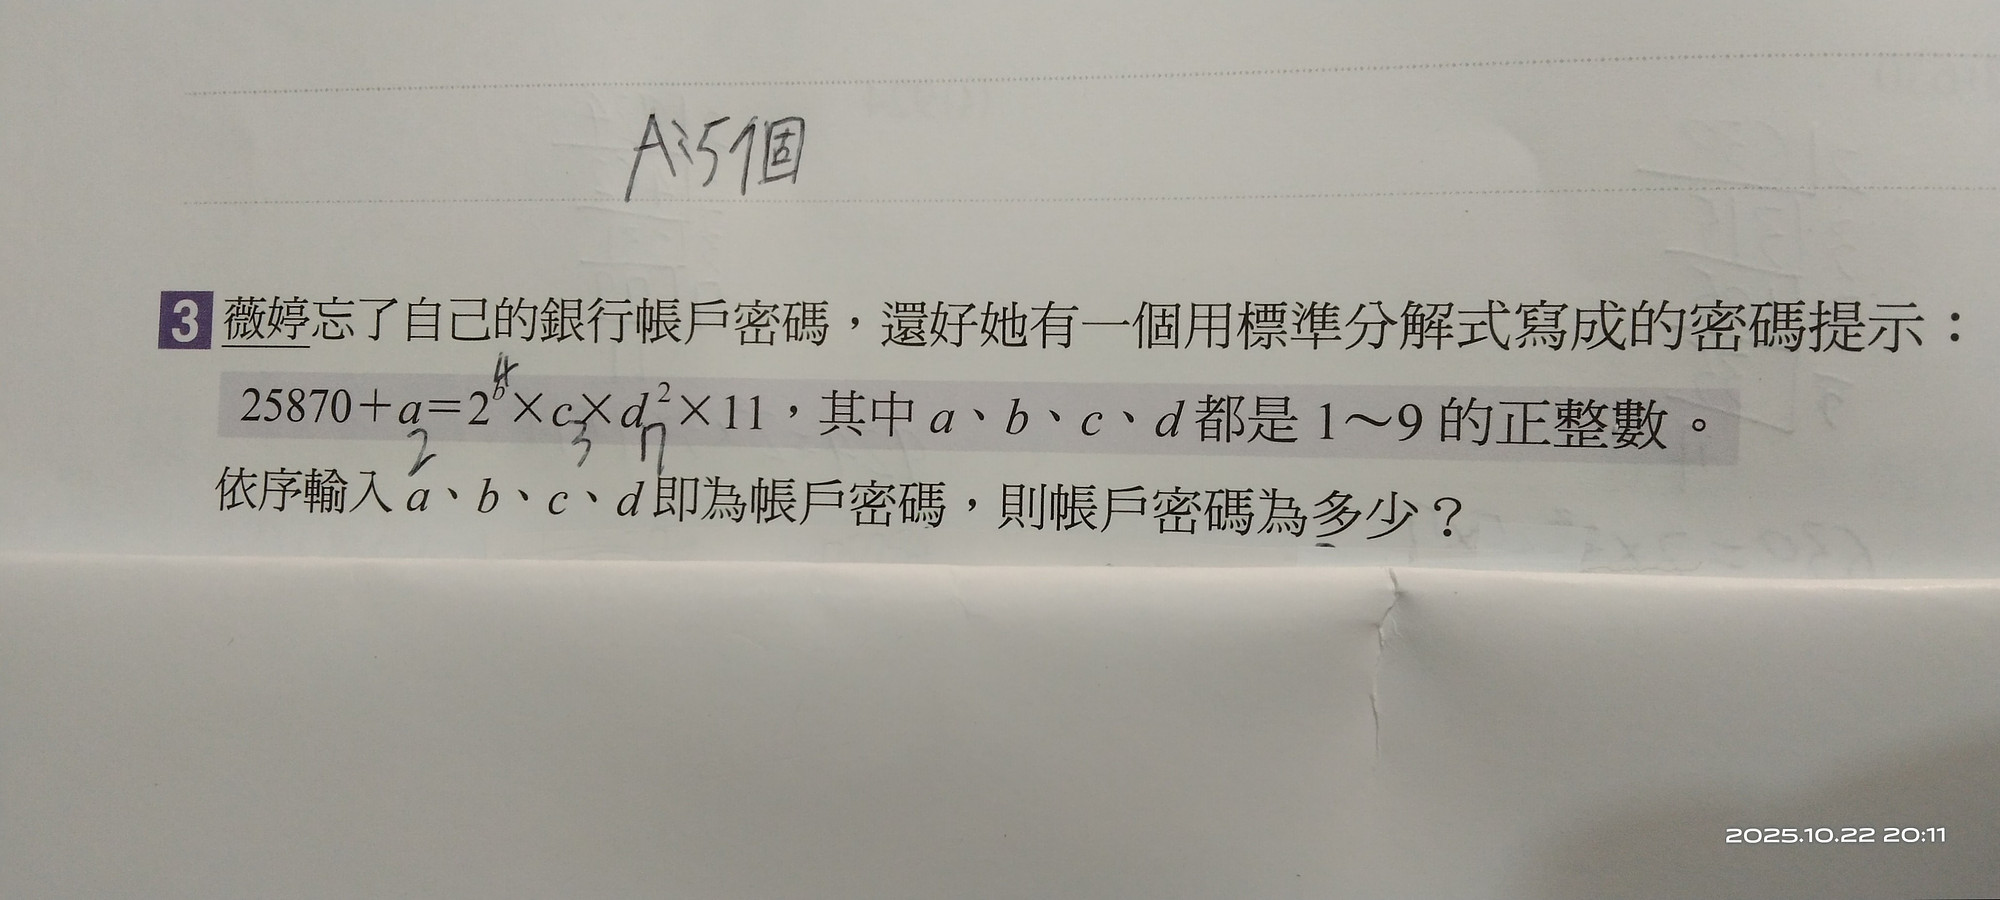 A:5個
3 薇婷忘了自己的銀行帳戶密碼，還好她有一個用標準分解式寫成的密碼提示：
4
25870＋a＝2^b×c×d^2×11，其中 a、b、c、d 都是 1～9 的正整數。
2 3 7
依序輸入 a、b、c、d 即為帳戶密碼，則帳戶密碼為多少？
2025.10.22 20:11